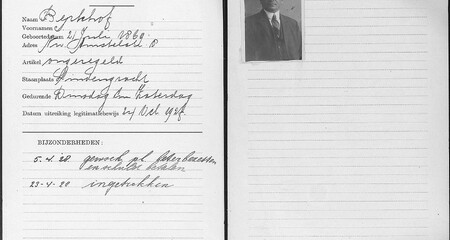 Naam Byrkhof
Voornamen
Geboortedatum 21 Juli 1860
Adres Nw. Amstelstr 8
Artikel ongeregeld
Staanplaats Lindengracht
Gedurende Dinsdag t/m Zaterdag
Datum uitreiking legitimatiebewijs 24 Oct 1927
BIJZONDERHEDEN:
5.4.28 gewoch pl.
betalen
23-4-28 ingetrokken